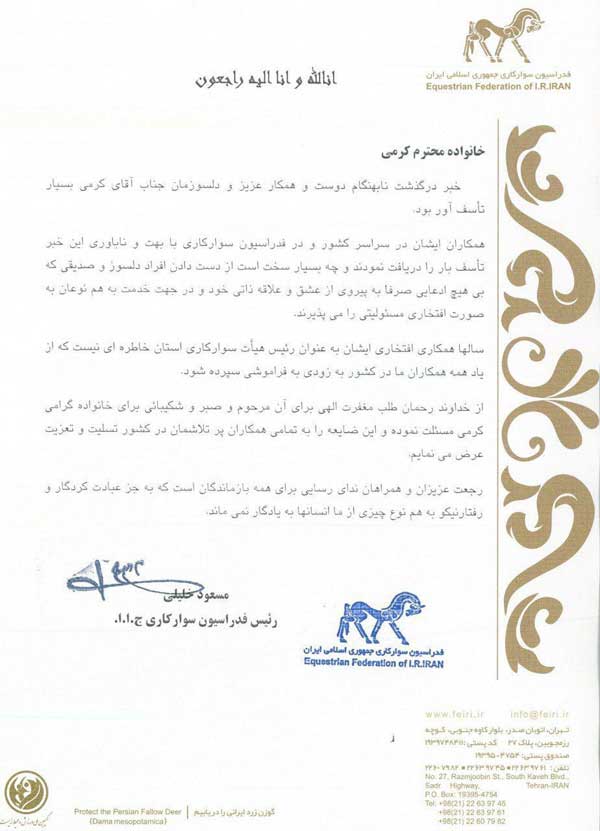 فدراسیون سوارکاری جمهوری اسلامی ایران
Equestrian Federation of I.R.IRAN
انالله و انا الیه راجعون
خانواده محترم کرمی
خبر درگذشت نابهنگام دوست و همکار عزیز و دلسوزمان جناب آقای کرمی بسیار
تأسف آور بود.
همکاران ایشان در سراسر کشور و در فدراسیون سوارکاری با بهت و ناباوری این خبر
تأسف بار را دریافت نمودند و چه بسیار سخت است از دست دادن افراد دلسوز و صدیقی که
بی هیچ ادعایی صرفا به پیروی از عشق و علاقه ذاتی خود و در جهت خدمت به هم نوعان به
صورت افتخاری مسئولیتی را می پذیرند.
سالها همکاری افتخاری ایشان به عنوان رئیس هیأت سوارکاری استان خاطره ای نیست که از
یاد همه همکاران ما در کشور به زودی به فراموشی سپرده شود.
از خداوند رحمان طلب مغفرت الهی برای آن مرحوم و صبر و شکیبائی برای خانواده گرامی
کرمی مسئلت نموده و این ضایعه را به تمامی همکاران پر تلاشمان در کشور تسلیت و تعزیت
عرض می نمایم.
رجعت عزیزان و همراهان ندای رسایی برای همه بازماندگان است که به جز عبادت کردگار و
رفتارنیکو به هم نوع چیزی از ما انسانها به یادگار نمی ماند.
مسعود خلیلی
رئیس فدراسیون سوارکاری ج.ا.ا.
فدراسیون سوارکاری جمهوری اسلامی ایران
Equestrian Federation of I.R.IRAN
www.feiri.ir info@feiri.ir
تهران، اتوبان صدر، بلوار کاوه جنوبی، کوچه
رزمجویین، پلاک ۲۷ کد پستی: ۱۹۳۹۷۴۸۴۱۱
صندوق پستی: ۴۷۵۴-۱۹۳۹۵
تلفن: ۲۲۶۳۹۷۶۱ • ۲۲۶۳۹۷۴۵ • ۲۲۶۰۷۹۸۲
No. 27, Razmjoobin St., South Kaveh Blvd.,
Sadr Highway, Tehran-IRAN
P.O. Box: 19395-4754
Tel: +98(21) 22 63 97 45
+98(21) 22 63 97 61
+98(21) 22 60 79 82
گوزن زرد ایرانی را دریابیم
Protect the Persian Fallow Deer
(Dama mesopotamica)